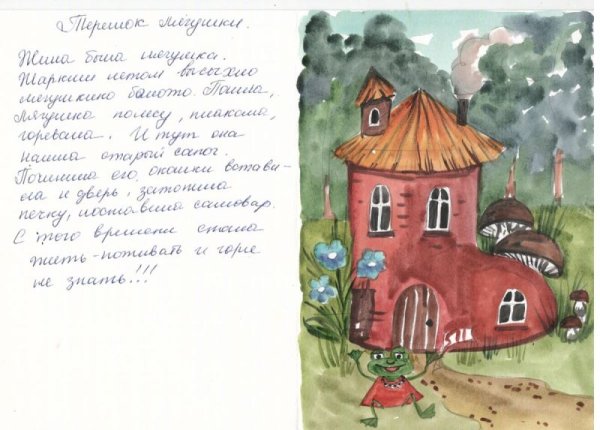 Теремок Лягушки.
Жила была лягушка.
Жарким летом высохло
лягушкино болото. Пошла,
Лягушка полесу, плакала,
горевала. И тут она
нашла старый сапог.
Починила его, окошки встави-
ла и дверь, затопила
печку, поставила самовар.
С того времени стала
жить-поживать и горе
не знать!!!